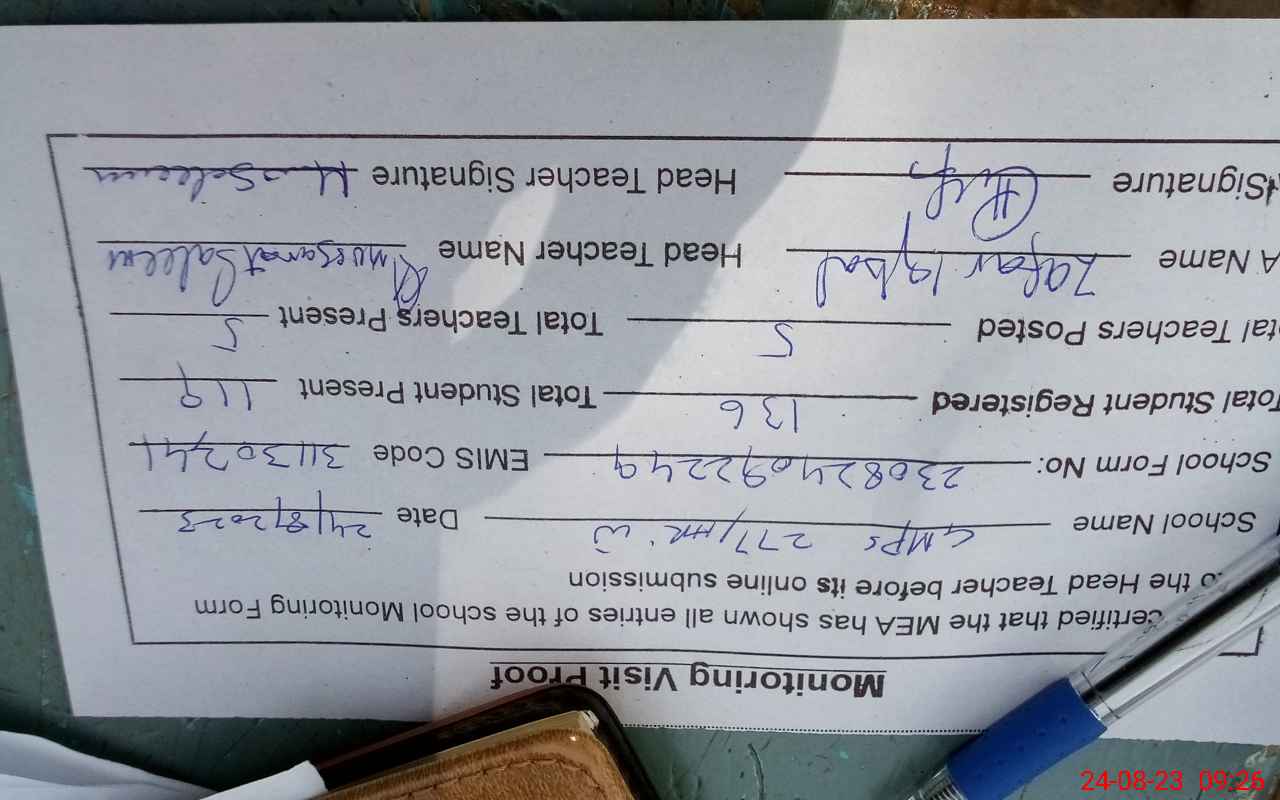 Monitoring Visit Proof
certified that the MEA has shown all entries of the school Monitoring Form
to the Head Teacher before its online submission
School Name GMPS 277/HR Date 24/8/2023
School Form No: 230824092249 EMIS Code 31130241
Total Student Registered 136 Total Student Present 119
Total Teachers Posted 5 Total Teachers Present 5
A Name Zafar Iqbal Head Teacher Name Saleem
Signature Head Teacher Signature Saleem
24-08-23 09:26